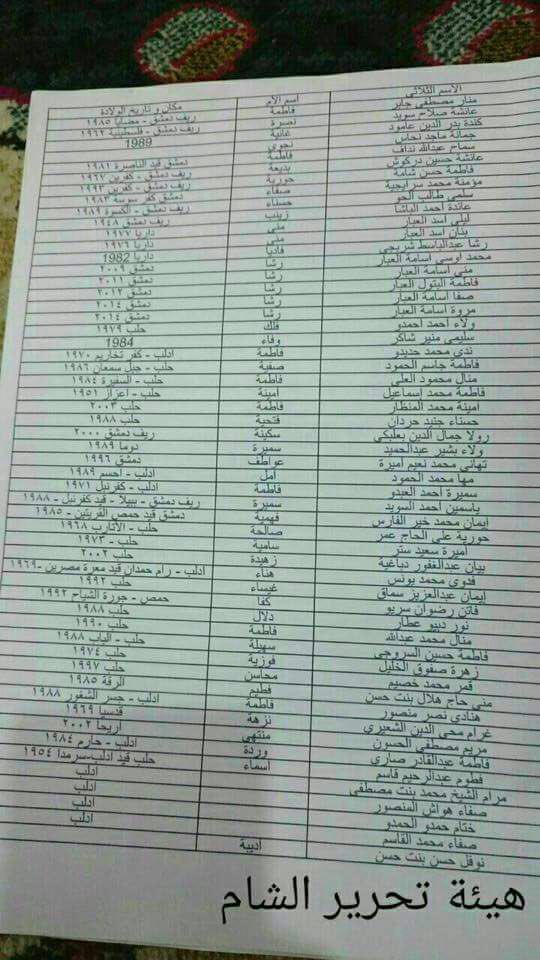 الاسم الثلاثي اسم الأم مكان و تاريخ الولادة
منار مصطفى جابر فاطمة ريف دمشق - مضايا ١٩٨٥
عائشة صلاح سويد نصرة ريف دمشق - فلسطينية ١٩٦٢
كندة بدر الدين عامود غانية 1989
جمانة ماجد نحاس نجوى
سماح عبدالله نداف فاطمة دمشق قيد الناصرة ١٩٨١
عائشة حسين دركوش بديعة ريف دمشق - كفرين ١٩٦٧
فاطمة حسن شامة حورية ريف دمشق - كفرين ١٩٩٣
مؤمنة محمد سرايجية صفاء دمشق كفر سوسة ١٩٨٣
سلمى طالب الحو حسناء ريف دمشق - الكسوة ١٩٨٩
عائدة احمد الباشا زينب ريف دمشق ١٩٤٨
ليلى اسد العبار منى داريا ١٩٧٧
بنان اسد العبار منى داريا ١٩٧٦
رشا عبدالباسط شربجي فاديا داريا 1982
محمد اوسي اسامة العبار رشا دمشق ٢٠٠٩
منى اسامة العبار رشا دمشق ٢٠١١
فاطمة البتول العبار رشا دمشق ٢٠١٢
صفا اسامة العبار رشا دمشق ٢٠١٤
مروة اسامة العبار رشا دمشق ٢٠١٤
ولاء احمد احمدو فلك حلب ١٩٧٩
سليمى منير شاكر وفاء 1984
ندى محمد حديدو فاطمة ادلب - كفر تخاريم ١٩٧٠
فاطمة جاسم الحمود صفية حلب - جبل سمعان ١٩٨٦
منال محمود العلي فاطمة حلب - السفيرة ١٩٨٤
فاطمة محمد اسماعيل امينة حلب - اعزاز ١٩٥١
امينة محمد المنظار فاطمة حلب ٢٠٠٣
حسناء جنيد حردان فتحية حلب ١٩٨٨
رولا جمال الدين بعلبكي سكينة ريف دمشق ٢٠٠٠
ولاء بشير عبدالحميد سميرة دوما ١٩٨٩
تهاني محمد نعيم اميرة عواطف دمشق ١٩٩٦
مها محمد الحمود أمل ادلب - احسم ١٩٨٩
سميرة احمد العبدو فاطمة ادلب - كفر نبل ١٩٧١
ياسمين احمد السويد سميرة ريف دمشق - ببيلا - قيد كفرنبل - ١٩٨٨
ايمان محمد خير الفارس فهمية دمشق قيد حمص القريتين - ١٩٨٥
حورية علي الحاج عمر صالحة حلب - الأتارب ١٩٦٨
اميرة سعيد ستر سامية حلب - ١٩٧٣
بيان عبدالغفور دباغية زهيدة حلب ٢٠٠٢
فدوى محمد يونس هناء ادلب - رام حمدان قيد معرة مصرين -١٩٦٩
ايمان عبدالعزيز سماق غيساء حلب ١٩٩٢
فاتن رضوان سريو كفا حمص - جورة الشياح ١٩٩٢
نور ديبو عطار دلال حلب ١٩٨٨
منال محمد عبدالله فاطمة حلب ١٩٩٠
فاطمة حسين السروجي سهيلة حلب - الباب ١٩٨٨
زهرة صفوق الخليل فوزية حلب ١٩٧٤
قمر محمد خصيم محاسن حلب ١٩٩٧
منى حاج هلال بنت حسن فطيم الرقة ١٩٨٥
هنادي نصر منصور فاطمة ادلب - جسر الشغور ١٩٨٨
غرام محي الدين الشعيري نزهة قدسيا ١٩٦٩
مريم مصطفى الحسون منتهى اريحا ٢٠٠٢
فاطمة عبدالقادر صاري وردة ادلب - حارم ١٩٨٤
فطوم عبدالرحيم قاسم اسماء حلب قيد ادلب-سرمدا ١٩٥٤
مرام الشيخ محمد بنت مصطفى ادلب
صفاء هواش المنصور ادلب
ختام حمدو الحمدو ادلب
صفاء محمد القاسم ادلب
نوفل حسن بنت حسن اديبة
هيئة تحرير الشام